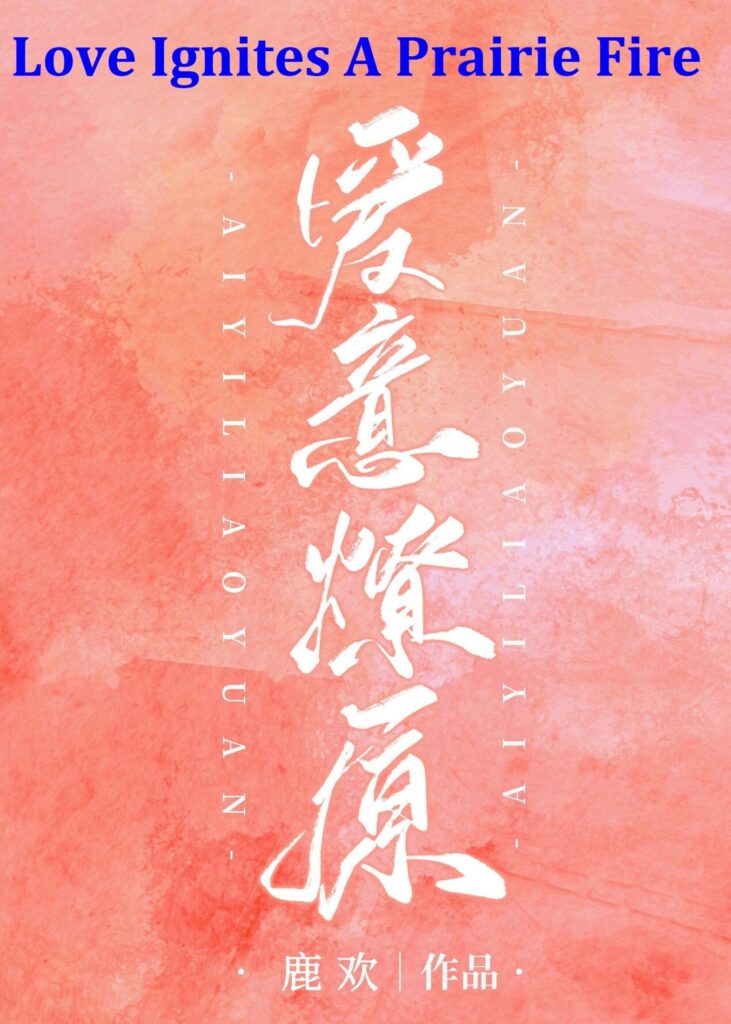 Love Ignites A Prairie Fire
- AIYILIAOYUAN -
爱意燎原
- AIYILIAOYUAN -
· 鹿欢｜作品 ·